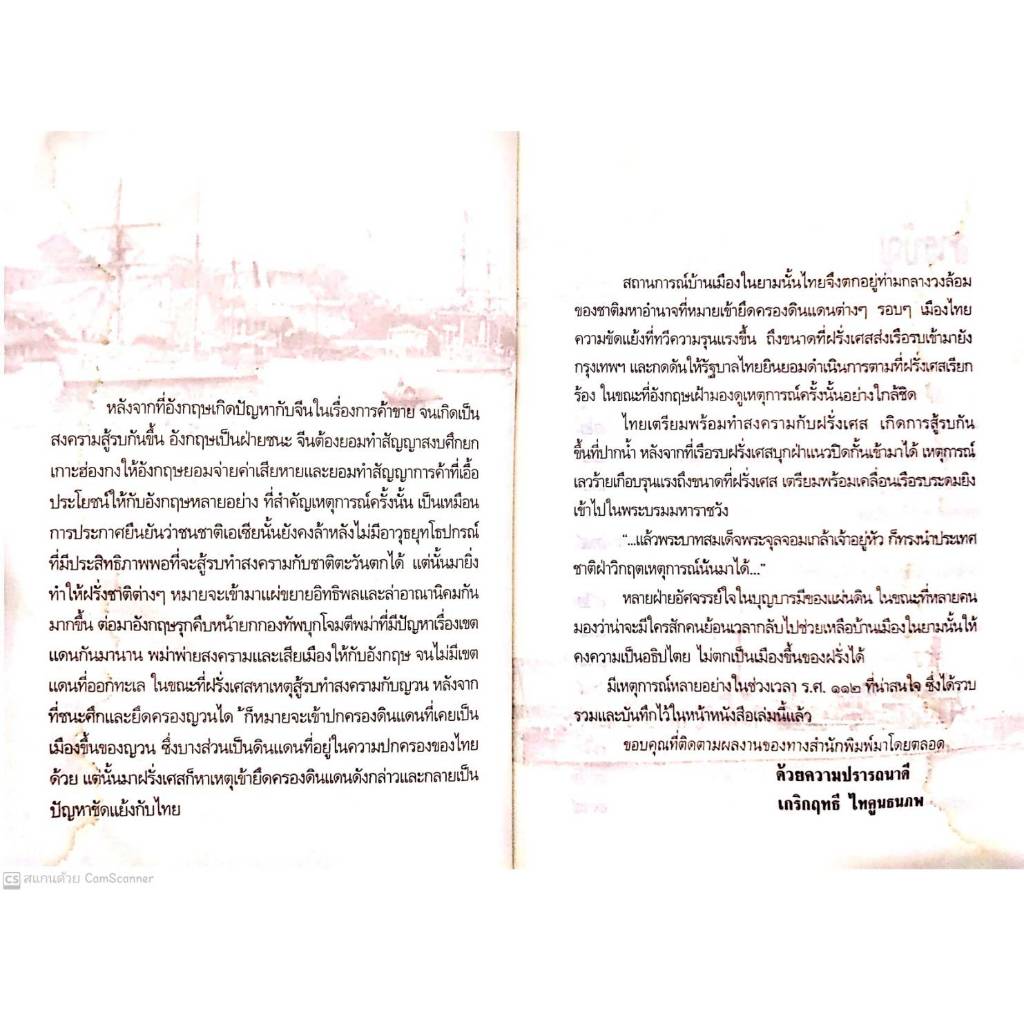 หลังจากที่อังกฤษเกิดปัญหากับจีนในเรื่องการค้าขาย จนเกิดเป็น
สงครามสู้รบกันขึ้น อังกฤษเป็นฝ่ายชนะ จีนต้องยอมทำสัญญาสงบศึกยก
เกาะฮ่องกงให้อังกฤษยอมจ่ายค่าเสียหายและยอมทำสัญญาการค้าที่เอื้อ
ประโยชน์ให้กับอังกฤษหลายอย่าง ที่สำคัญเหตุการณ์ครั้งนั้น เป็นเหมือน
การประกาศยืนยันว่าชนชาติเอเซียนั้นยังคงล้าหลังไม่มีอาวุธยุทโธปกรณ์
ที่มีประสิทธิภาพพอที่จะสู้รบทำสงครามกับชาติตะวันตกได้ แต่นั้นมายิ่ง
ทำให้ฝรั่งชาติต่างๆ หมายจะเข้ามาแผ่ขยายอิทธิพลและล่าอาณานิคมกัน
มากขึ้น ต่อมาอังกฤษรุกคืบหน้ายกกองทัพบุกโจมตีพม่าที่มีปัญหาเรื่องเขต
แดนกันมานาน พม่าพ่ายสงครามและเสียเมืองให้กับอังกฤษ จนไม่มีเขต
แดนที่ออกทะเล ในขณะที่ฝรั่งเศสหาเหตุสู้รบทำสงครามกับญวน หลังจาก
ที่ชนะศึกและยึดครองญวนได ้ ก็หมายจะเข้าปกครองดินแดนที่เคยเป็น
เมืองขึ้นของญวน ซึ่งบางส่วนเป็นดินแดนที่อยู่ในความปกครองของไทย
ด้วย แต่นั้นมาฝรั่งเศสก็หาเหตุเข้ายึดครองดินแดนดังกล่าวและกลายเป็น
ปัญหาขัดแย้งกับไทย
สถานการณ์บ้านเมืองในยามนั้นไทยจึงตกอยู่ท่ามกลางวงล้อม
ของชาติมหาอำนาจที่หมายเข้ายึดครองดินแดนต่างๆ รอบๆ เมืองไทย
ความขัดแย้งที่ทวีความรุนแรงขึ้น ถึงขนาดที่ฝรั่งเศสส่งเรือรบเข้ามายัง
กรุงเทพฯ และกดดันให้รัฐบาลไทยยินยอมดำเนินการตามที่ฝรั่งเศสเรียก
ร้อง ในขณะที่อังกฤษเฝ้ามองดูเหตุการณ์ครั้งนั้นอย่างใกล้ชิด
ไทยเตรียมพร้อมทำสงครามกับฝรั่งเศส เกิดการสู้รบกัน
ขึ้นที่ปากน้ำ หลังจากที่เรือรบฝรั่งเศสบุกฝ่าแนวปิดกั้นเข้ามาได้ เหตุการณ์
เลวร้ายเกือบรุนแรงถึงขนาดที่ฝรั่งเศส เตรียมพร้อมเคลื่อนเรือรบระดมยิง
เข้าไปในพระบรมมหาราชวัง
“...แล้วพระบาทสมเด็จพระจุลจอมเกล้าเจ้าอยู่หัว ก็ทรงนำประเทศ
ชาติฝ่าวิกฤตเหตุการณ์นั้นมาได้...”
หลายฝ่ายอัศจรรย์ใจในบุญบารมีของแผ่นดิน ในขณะที่หลายคน
มองว่าน่าจะมีใครสักคนย้อนเวลากลับไปช่วยเหลือบ้านเมืองในยามนั้นให้
คงความเป็นอธิปไตย ไม่ตกเป็นเมืองขึ้นของฝรั่งได้
มีเหตุการณ์หลายอย่างในช่วงเวลา ร.ศ. ๑๑๒ ที่น่าสนใจ ซึ่งได้รวบ
รวมและบันทึกไว้ในหน้าหนังสือเล่มนี้แล้ว
ขอบคุณที่ติดตามผลงานของทางสำนักพิมพ์มาโดยตลอด
ด้วยความปรารถนาดี
เกริกฤทธิ์ ไทคูนธนภพ
CS สแกนด้วย CamScanner